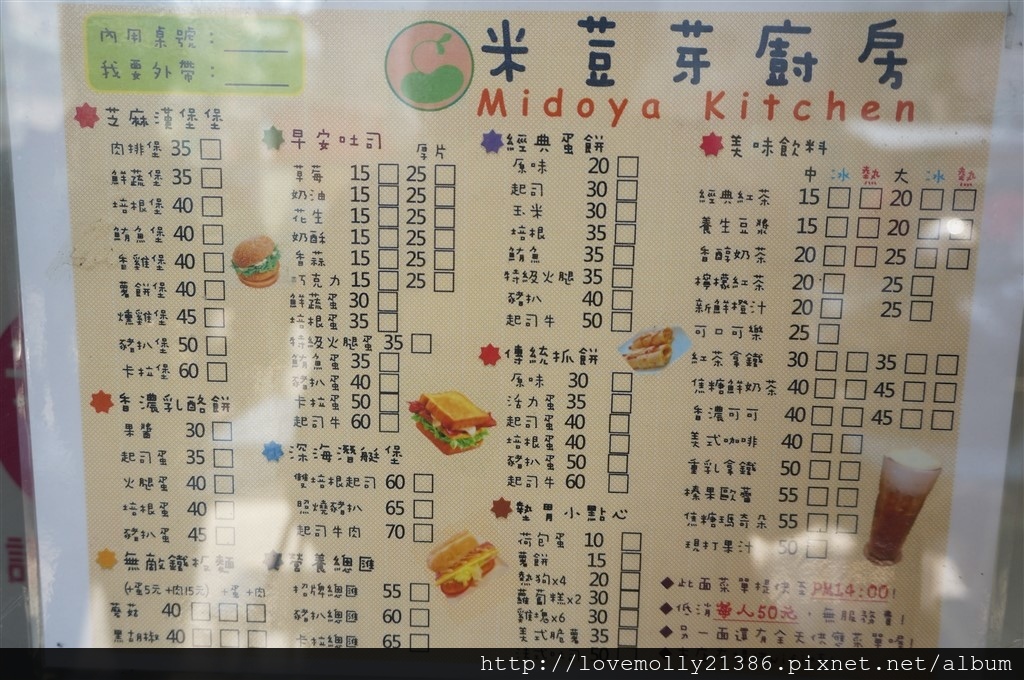 內用桌號：
我要外帶：
米荳芽廚房
Midoya Kitchen
芝麻漢堡堡
肉排堡 35
鮮蔬堡 35
培根堡 40
鮪魚堡 40
香雞堡 40
薯餅堡 40
燻雞堡 45
豬扒堡 50
卡拉堡 60
香濃乳酪餅
果醬 30
起司蛋 35
火腿蛋 40
培根蛋 40
豬扒蛋 45
無敵鐵板麵
(+蛋5元 +肉15元) +蛋 +肉
蘑菇 40
黑胡椒 40
早安吐司
厚片
草莓 15 25
奶油 15 25
花生 15 25
奶酥 15 25
香蒜 15 25
巧克力 15 25
鮮蔬蛋 30
培根蛋 35
特級火腿蛋 35
鮪魚蛋 35
豬扒蛋 40
卡拉蛋 50
起司牛 60
深海潛艇堡
雙培根起司 60
照燒豬扒 65
起司牛肉 70
營養總匯
招牌總匯 55
豬扒總匯 60
卡拉總匯 65
經典蛋餅
原味 20
起司 30
玉米 30
培根 35
鮪魚 35
特級火腿 35
豬扒 40
起司牛 50
傳統抓餅
原味 30
活力蛋 35
起司蛋 40
培根蛋 40
豬扒蛋 50
起司牛 60
墊胃小點心
荷包蛋 10
薯餅 15
熱狗x4 20
蘿蔔糕x2 30
雞塊x6 30
美式脆薯 35
美味飲料
中 冰 熱 大 冰 熱
經典紅茶 15 20
養生豆漿 15 20
香醇奶茶 20 25
檸檬紅茶 20 25
新鮮橙汁 20 25
可口可樂 25
紅茶拿鐵 30 35
焦糖鮮奶茶 40 45
香濃可可 40 45
美式咖啡 40
重乳拿鐵 50
榛果歐蕾 55
焦糖瑪奇朵 55
現打果汁 50
◆此面菜單提供至PM14:00!
◆低消單人50元，無服務費!
◆另一面還有全天供應菜單喔!
http://lovemolly21386.pixnet.net/album